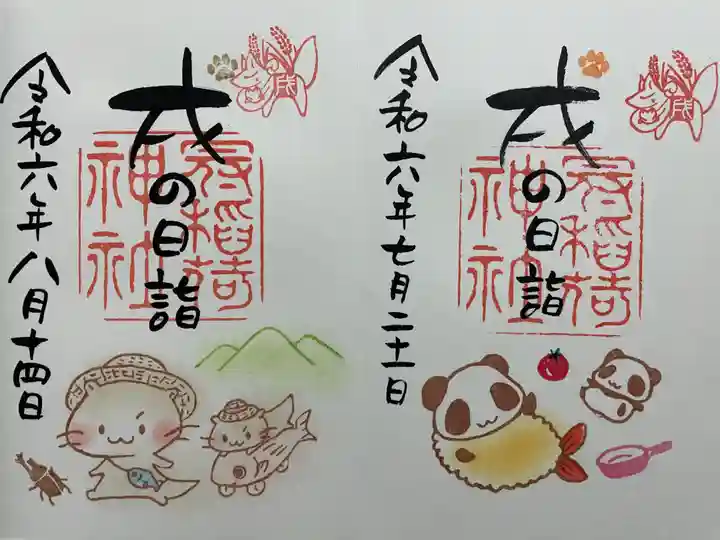 戌
戌の日詣
冠稲荷
神社
令和六年八月十四日
戌
戌の日詣
冠稲荷
神社
令和六年七月二十一日